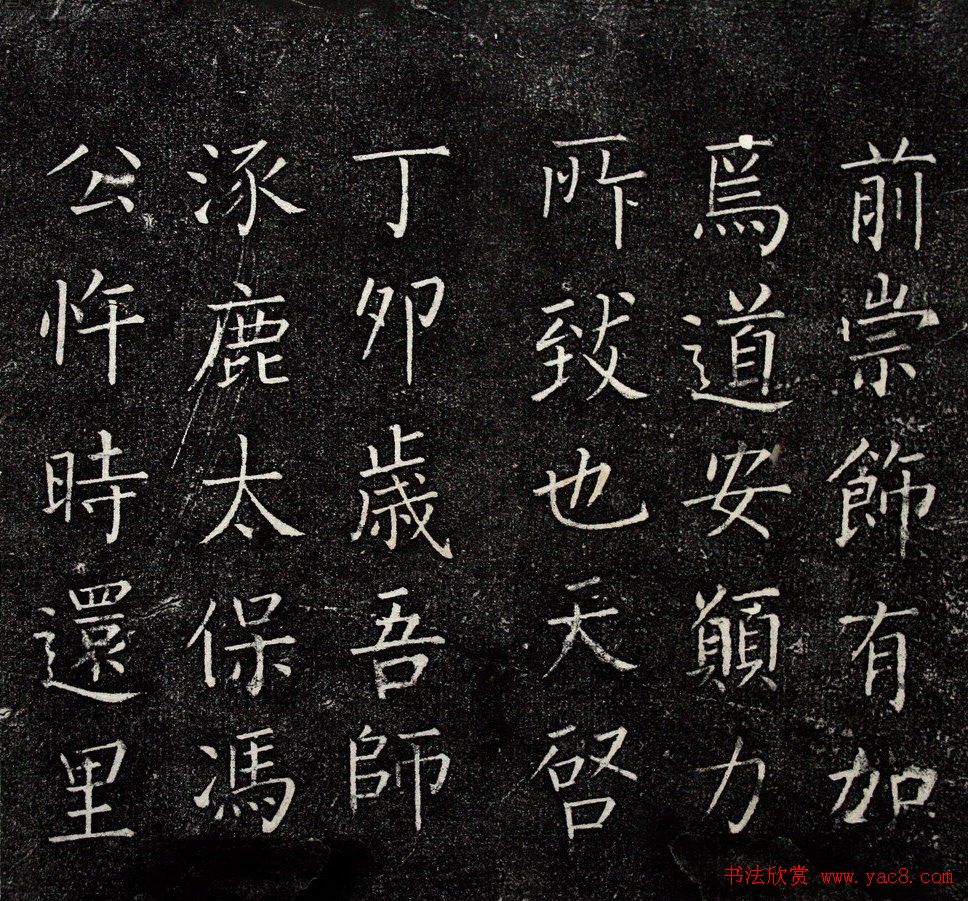 前崇飾有加
焉道安顛力
所致也天啓
丁卯歲吾師
涿鹿太保馮
公忤時還里
书法欣赏 www.yac8.com